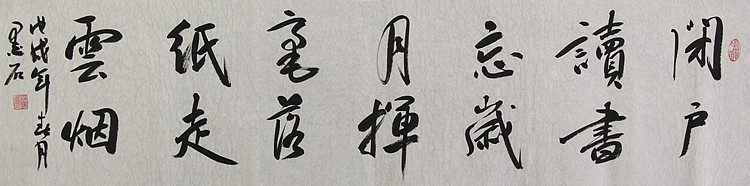 閉户
讀書
忘歲
月揮
毫落
紙走
雲烟
戊戌年春月
墨石